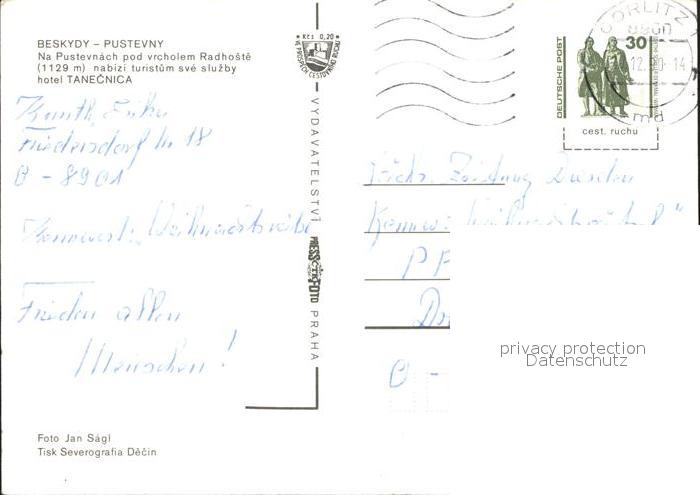 BESKYDY – PUSTEVNY
Na Pustevnách pod vrcholem Radhoště
(1129 m) nabízí turistům své služby
hotel TANEČNICA
Friedersdorf Nr 18
O - 8901
Kennwort: Weihnachtsrätsel
Frieden allen
Menschen!
Foto Jan Ságl
Tisk Severografia Děčín
* Kčs 0,20 *
VE PROSPĚCH CESTOVNÍHO RUCHU
VYDAVATELSTVÍ
PRESSFOTO
PRAHA
GÖRLITZ 1
8900
12. 90 - 14
md
DEUTSCHE POST
30
cest. ruchu
Sächs. Zeitung Dresden
Kennw:
PF
O -
privacy protection
Datenschutz